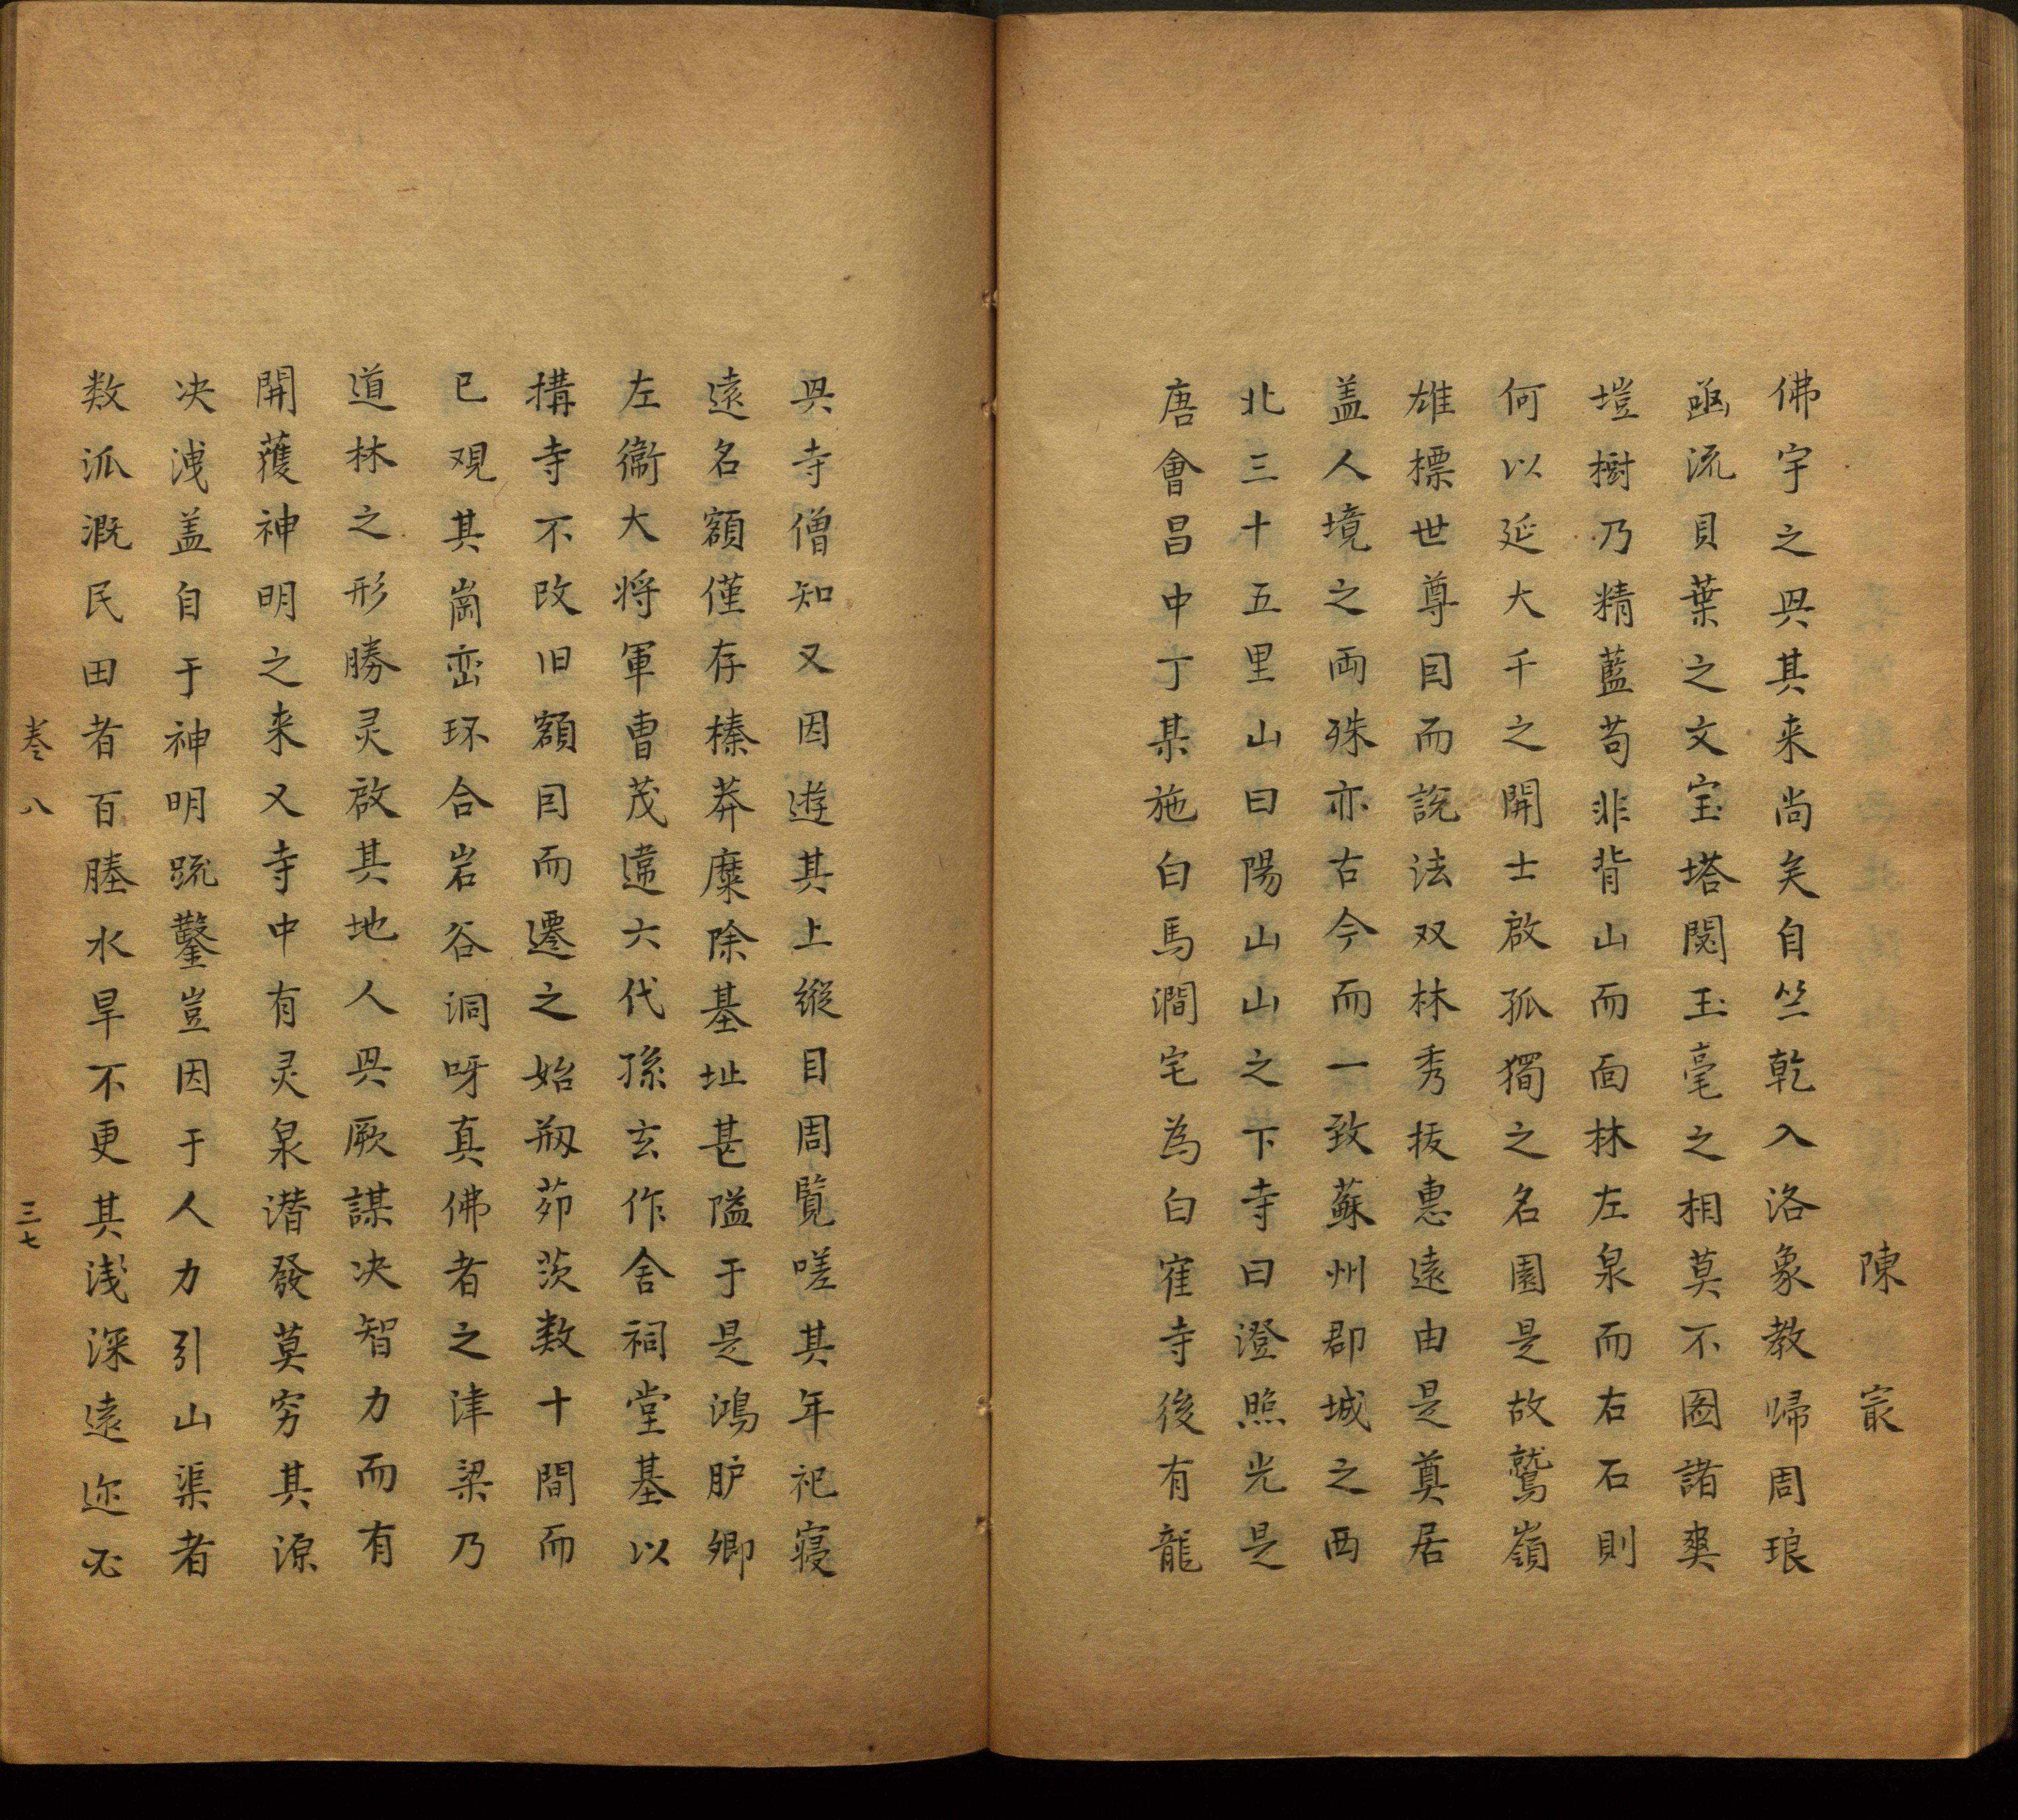 陳　㝡
佛宇之興其来尚矣自竺乾入洛象教歸周琅
函流貝葉之文宝塔閟玉毫之相莫不圖諸爽
塏樹乃精藍苟非背山而面林左泉而右石則
何以延大千之開士啟孤獨之名園是故鷲嶺
雄標世尊目而説法双林秀拔惠遠由是奠居
盖人境之両殊亦古今而一致蘇州郡城之西
北三十五里山曰陽山山之下寺曰澄照光是
唐會昌中丁某施白馬澗宅為白寉寺後有龍
興寺僧知又因遊其上縱目周覧嗟其年祀寝
遠名額僅存榛莽糜除基址甚隘于是鴻胪卿
左衞大将軍曹茂達六代孫玄作舍祠堂基以
構寺不改旧額目而遷之始剏茆茨数十間而
已观其崗峦环合岩谷洞呀真佛者之津梁乃
道林之形勝灵啟其地人興厥謀决智力而有
開蕿神明之来又寺中有灵泉潜發莫穷其源
决洩盖自于神明䟽鑿豈因于人力引山渠者
数派溉民田者百塍水旱不更其浅深遠迩必
卷八
三七